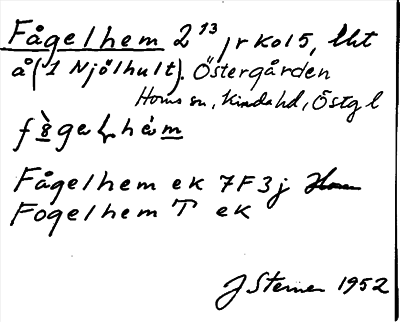 Fågelhem 2 13 jrkol5, lht
å (1 Njölhult). Östergården
Horns sn, Kinda hd, Östg l
Fågelhem ek 7F3j Horn
Fogelhem T ek
J Sterner 1952